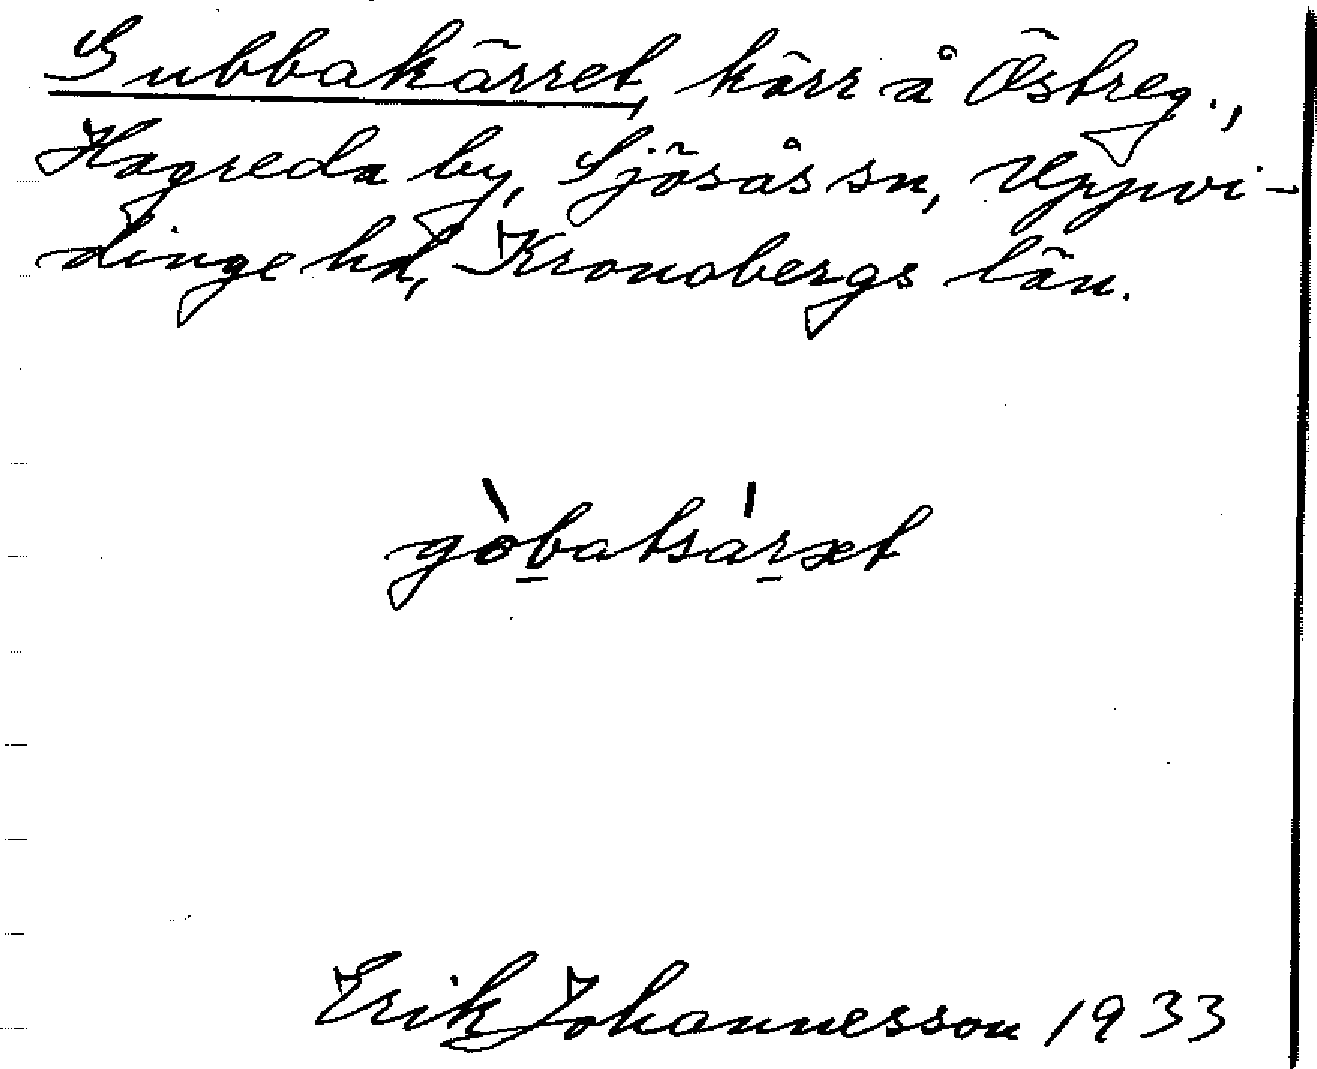 Gubbakärret, kärr å Östreg.,
Hagreda by, Sjösås sn, Uppvi-
dinge hd, Kronobergs län.
gòba̲tsár̲æt
Erik Johannesson 1933